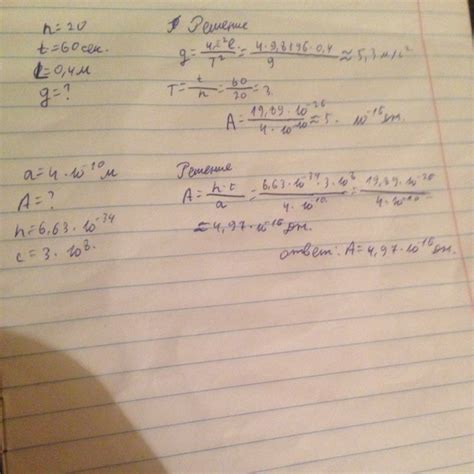 n = 20
t = 60 сек.
l = 0,4 м
g = ?
Решение
g = 4π²l / T² = 4·9,8596·0,4 / 9 ≈ 5,3 м/с²
T = t / n = 60 / 20 = 3.
A = 19,89·10⁻²⁶ / 4·10⁻¹⁰ ≈ 5· 10⁻¹⁶ Дж.
a = 4·10⁻¹⁰ м
A = ?
h = 6,63·10⁻³⁴
c = 3·10⁸.
Решение
A = h·c / a = 6,63·10⁻³⁴·3·10⁸ / 4·10⁻¹⁰ = 19,89·10⁻²⁶ / 4·10⁻¹⁰
≈ 4,97·10⁻¹⁶ Дж.
ответ: A = 4,97·10⁻¹⁶ Дж.